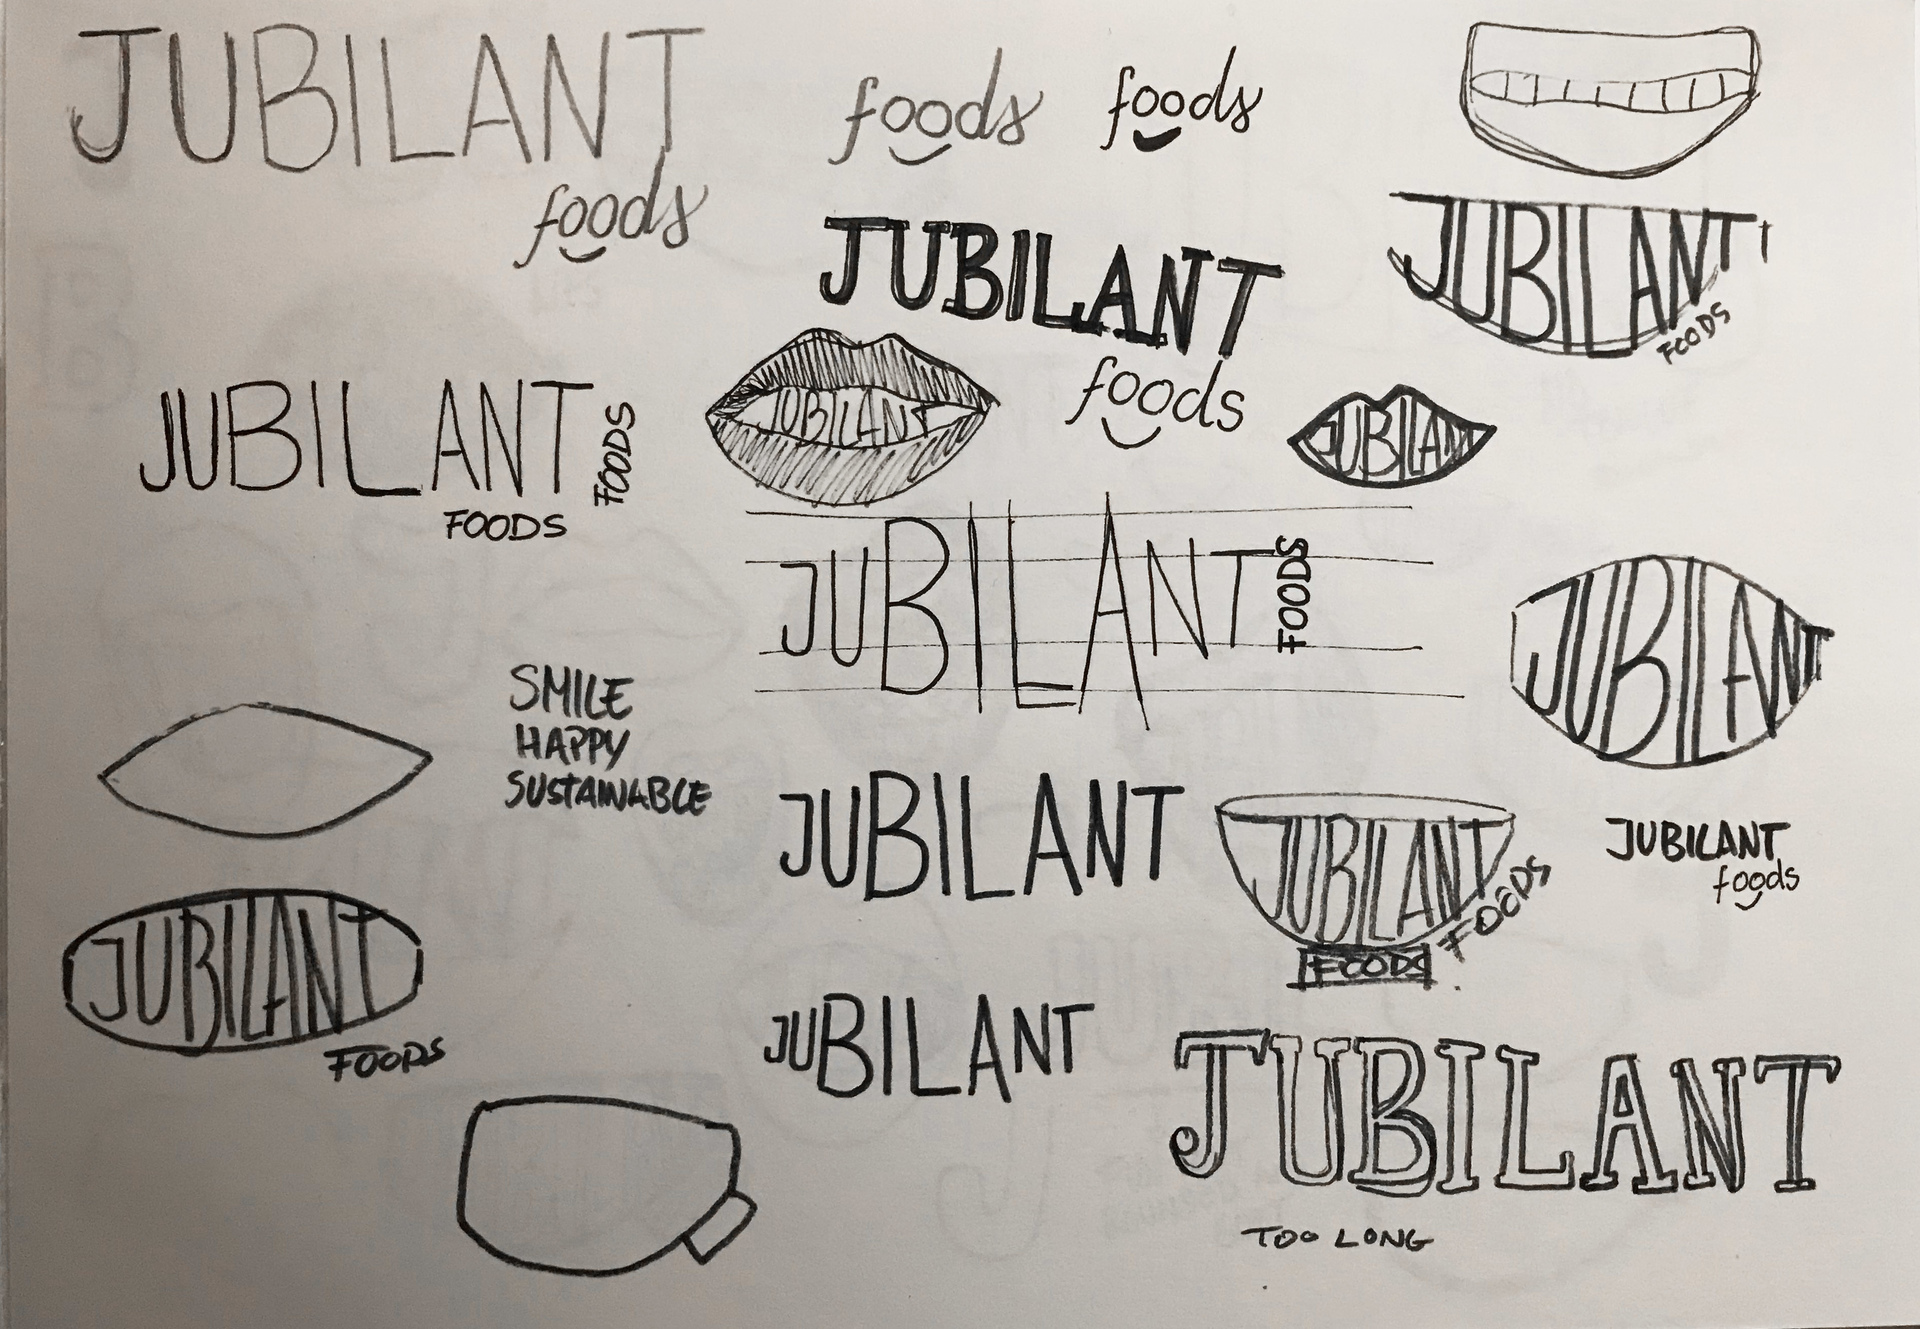 JUBILANT
foods
foods
foods
JUBILANT
foods
JUBILANT
FOODS
JUBILANT
FOODS
FOODS
JUBILANT
JUBILANT
JUBILANT
FOODS
JUBILANT
SMILE
HAPPY
SUSTAINABLE
JUBILANT
JUBILANT
FOODS
FOODS
JUBILANT
foods
JUBILANT
FOODS
JUBILANT
JUBILANT
TOO LONG